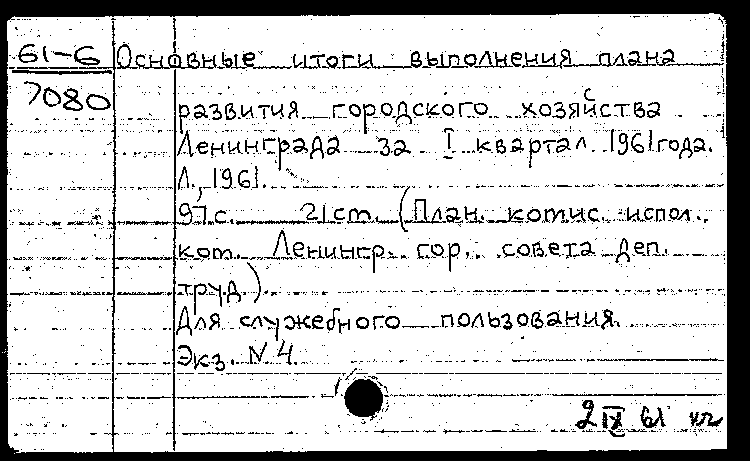 61-6 Основные итоги выполнения плана
7080 развития городского хозяйства
Ленинграда за I квартал 1961 года.
Л., 1961.
97с. 21 ст. (План. комис. испол.
ком. Ленингр. гор. совета деп.
труд.).
Для служебного пользования.
Экз. N 4.
2 IX 61